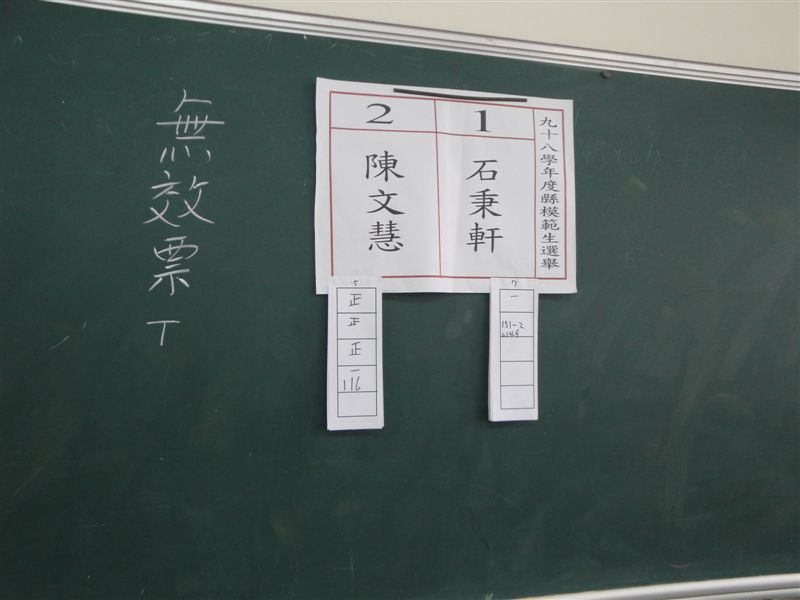 九十八學年度縣模範生選舉
1
石秉軒
2
陳文慧
7
一
151-2
=149
5
正
正
正
一
116
無效票
T